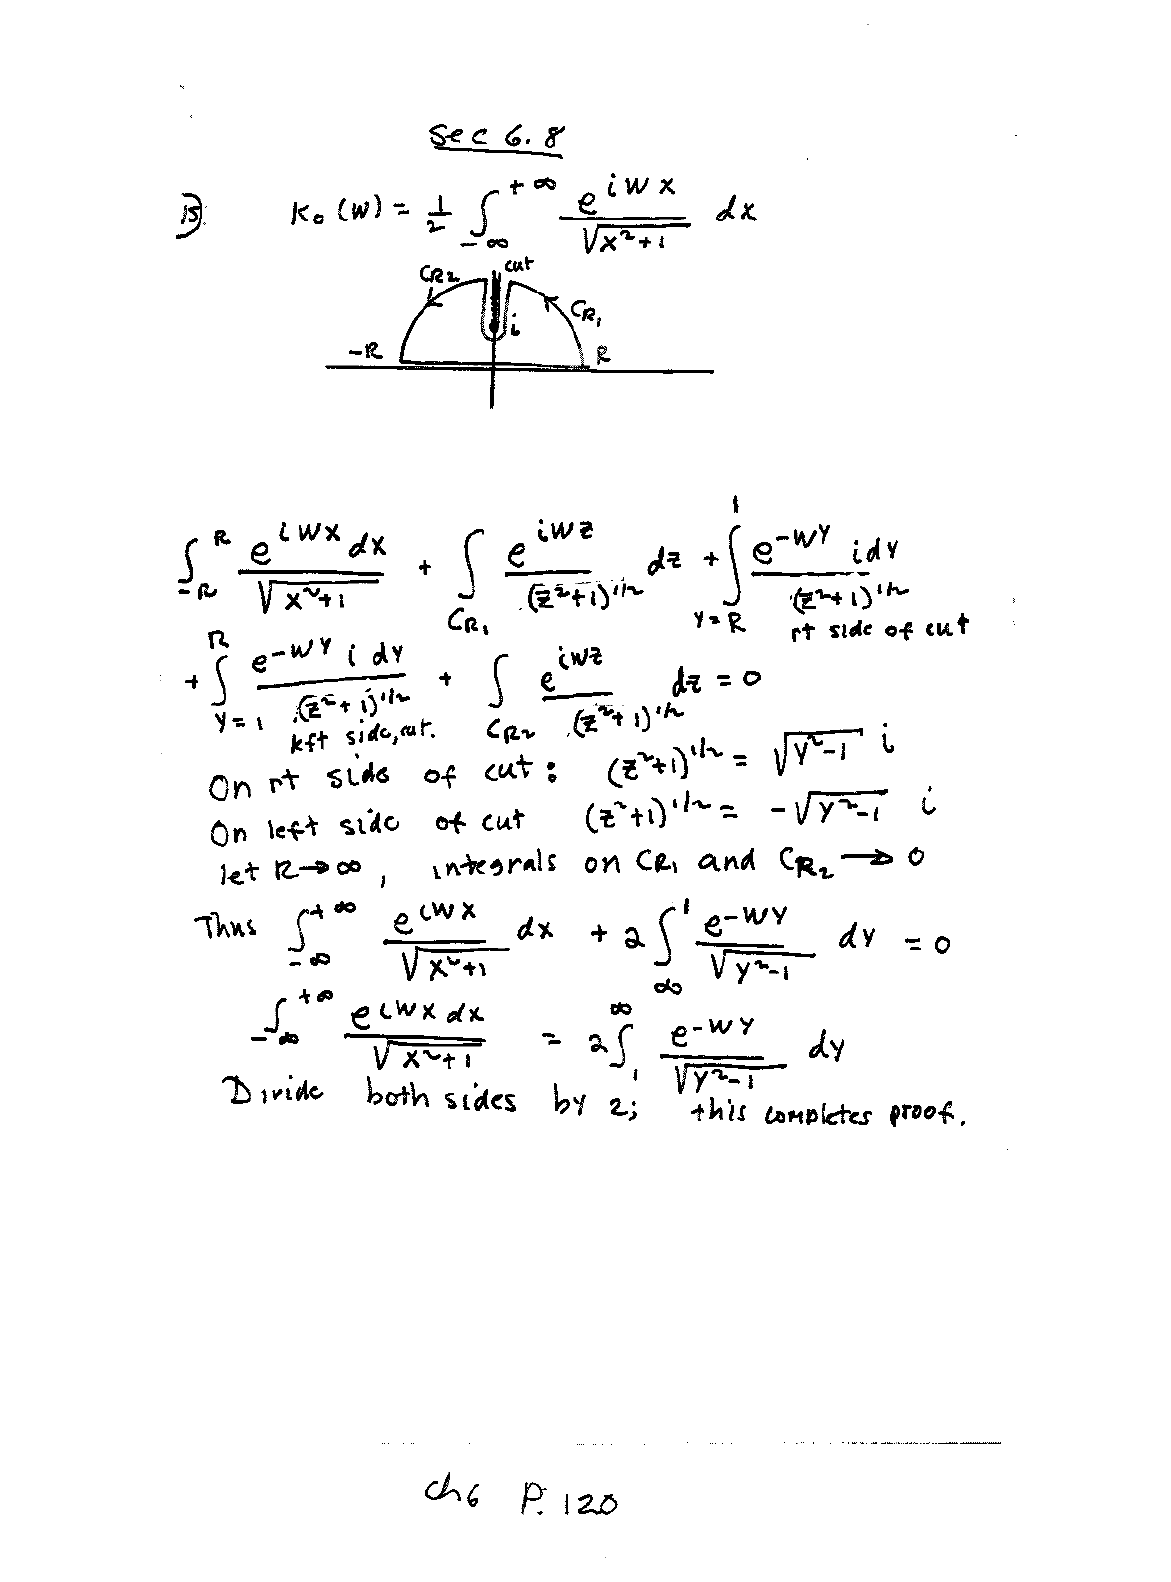 Sec 6.8
15) K₀(w) = 1/2 ∫_{-∞}^{+∞} e^{iwx}/√(x²+1) dx
C_{R2} cut
C_{R1}
i
-R R
∫_{-R}^{R} e^{iwx} dx/√(x²+1) + ∫_{C_{R1}} e^{iwz}/(z²+1)^{1/2} dz + ∫_{y=R}^{1} e^{-wy} i dy/(z²+1)^{1/2}
rt side of cut
+ ∫_{y=1}^{R} e^{-wy} i dy/(z²+1)^{1/2} + ∫_{C_{R2}} e^{iwz}/(z²+1)^{1/2} dz = 0
left side, cut.
On rt side of cut: (z²+1)^{1/2} = √(y²-1) i
On left side of cut (z²+1)^{1/2} = -√(y²-1) i
let R→∞, integrals on C_{R1} and C_{R2} → 0
Thus ∫_{-∞}^{+∞} e^{iwx}/√(x²+1) dx + 2∫_{∞}^{1} e^{-wy}/√(y²-1) dy = 0
∫_{-∞}^{+∞} e^{iwx} dx/√(x²+1) = 2∫_{1}^{∞} e^{-wy}/√(y²-1) dy
Divide both sides by 2; this completes proof.
ch6 P. 120